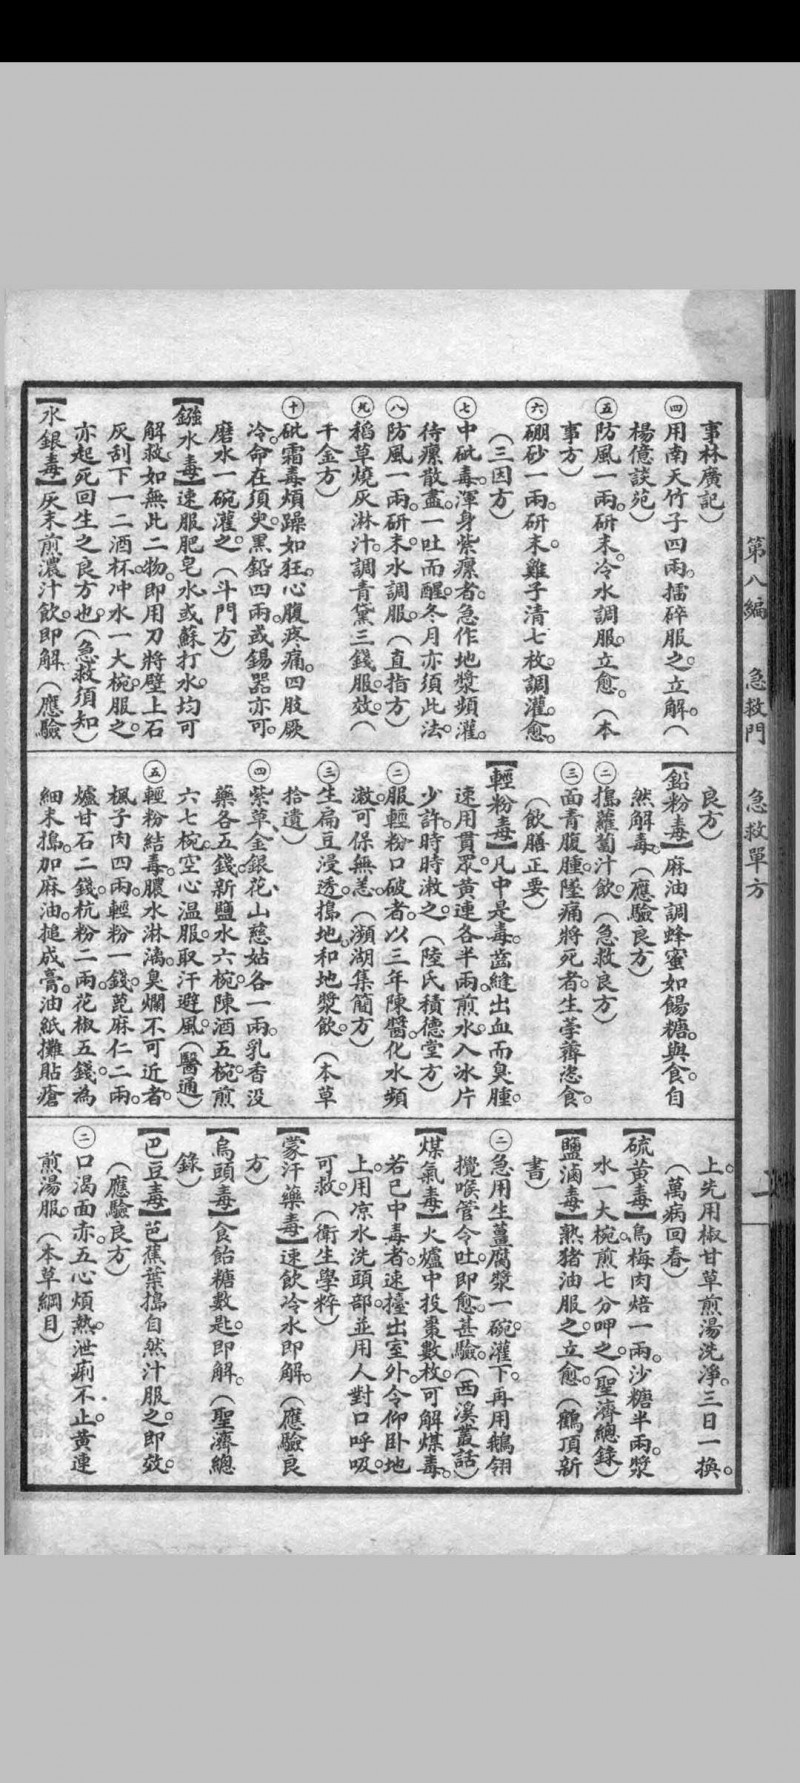 第八編　急救門　急救單方
事林廣記）
㊃用南天竹子四兩。擂碎服之。立解。（
楊億談苑）
㊄防風一兩。研末。冷水調服。立愈。（本
事方）
㊅硼砂一兩。研末。雞子清七枚。調灌。愈。
（三因方）
㊆中砒毒。渾身紫瘰者。急作地漿頻灌。
待瘰散盡。一吐而醒。冬月亦須此法。
㊇防風一兩。研末。水調服。（直指方）
㊈稻草燒灰淋汁。調青黛三錢服。效。（
千金方）
㊉砒霜毒煩躁如狂。心腹疼痛。四肢厥
冷。命在須臾。黑鉛四兩。或錫器亦可。
磨水一碗灌之。（斗門方）
【鏹水毒】速服肥皂水。或蘇打水。均可
解救。如無此二物。即用刀將壁上石
灰刮下一二酒杯。冲水一大椀。服之。
亦起死回生之良方也。（急救須知）
【水銀毒】灰末煎濃汁飲。即解。（應驗
良方）
【鉛粉毒】麻油調蜂蜜如餳糖。與食。自
然解毒。（應驗良方）
㊁搗蘿蔔汁飲。（急救良方）
㊂面青腹腫。墜痛將死者。生荸薺恣食。
（飲膳正要）
【輕粉毒】凡中是毒。齒縫出血而臭腫。
速用貫眾。黃連各半兩。煎水。入冰片
少許。時時漱之。（陸氏積德堂方）
㊁服輕粉口破者。以三年陳醬。化水頻
漱。可保無恙。（瀕湖集簡方）
㊂生扁豆浸透搗地。和地漿飲。（本草
拾遺）
㊃紫草、金銀花、山慈姑各一兩。乳香、沒
藥各五錢。新鹽水六椀。陳酒五椀。煎
六七椀。空心温服。取汗避風。（醫通）
㊄輕粉結毒。膿水淋漓。臭爛不可近者。
楓子肉四兩。輕粉一錢。萞麻仁二兩。
爐甘石二錢。杭粉一兩。花椒五錢。為
細末。搗。加麻油。搥成膏。油紙攤貼瘡
上。先用椒甘草煎湯洗淨。三日一換。
（萬病回春）
【硫黃毒】烏梅肉焙一兩。沙糖半兩。漿
水一大椀。煎七分。呷之。（聖濟總錄）
【鹽滷毒】熟猪油服之。立愈。（鶴頂新
書）
㊁急用生薑腐漿一碗。灌下。再用鵝翎
攪喉管令吐。即愈。甚驗。（西溪叢話）
【煤氣毒】火爐中投棗數枚。可解煤毒。
若已中毒者。速擡出室外。令仰臥地
上。用凉水洗頭部。並用人對口呼吸
可救。（衛生學粹）
【蒙汗藥毒】速飲冷水即解。（應驗良
方）
【烏頭毒】食飴糖數匙。即解。（聖濟總
錄）
【巴豆毒】芭蕉葉搗自然汁服之。即效。
（應驗良方）
㊁口渴面赤。五心煩熱。泄痢不止。黃連
煎湯服。（本草綱目）